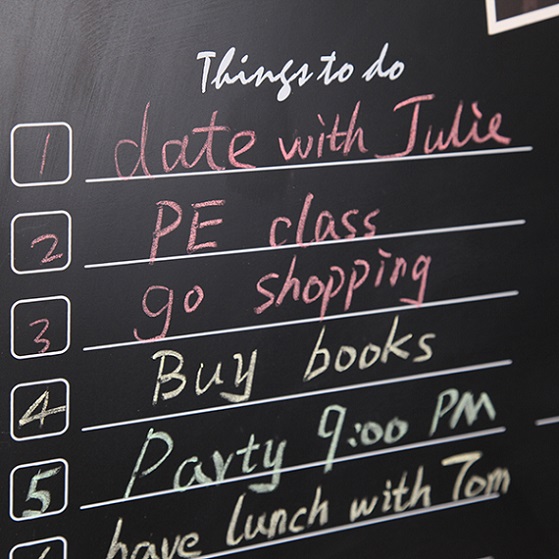 Things to do
1 date with Julie
2 PE class
3 go shopping
4 Buy books
5 Party 9:00 PM
have lunch with Tom